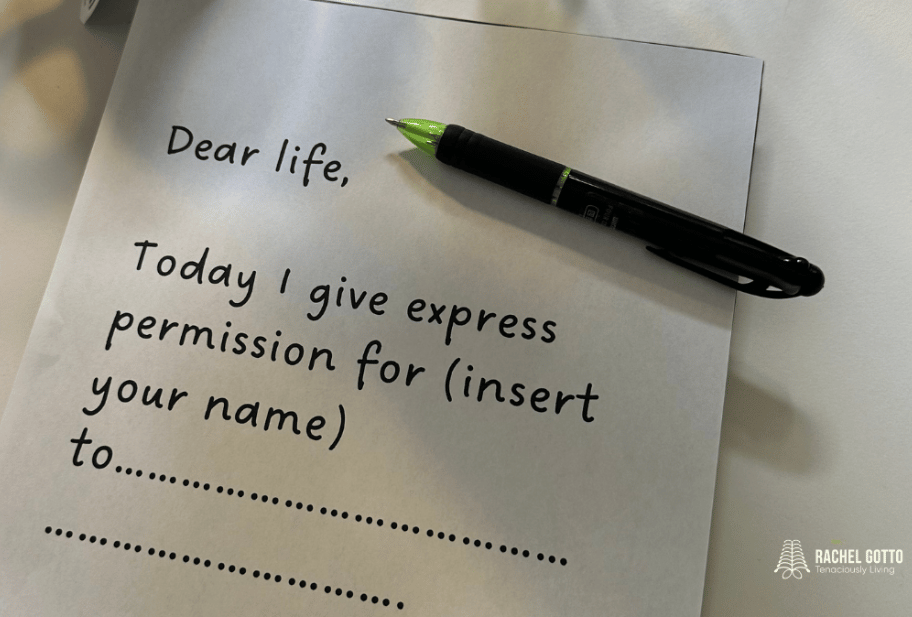 Dear life,
Today I give express
permission for (insert
your name)
to.................................................
.......................................
RACHEL GOTTO
Tenaciously Living